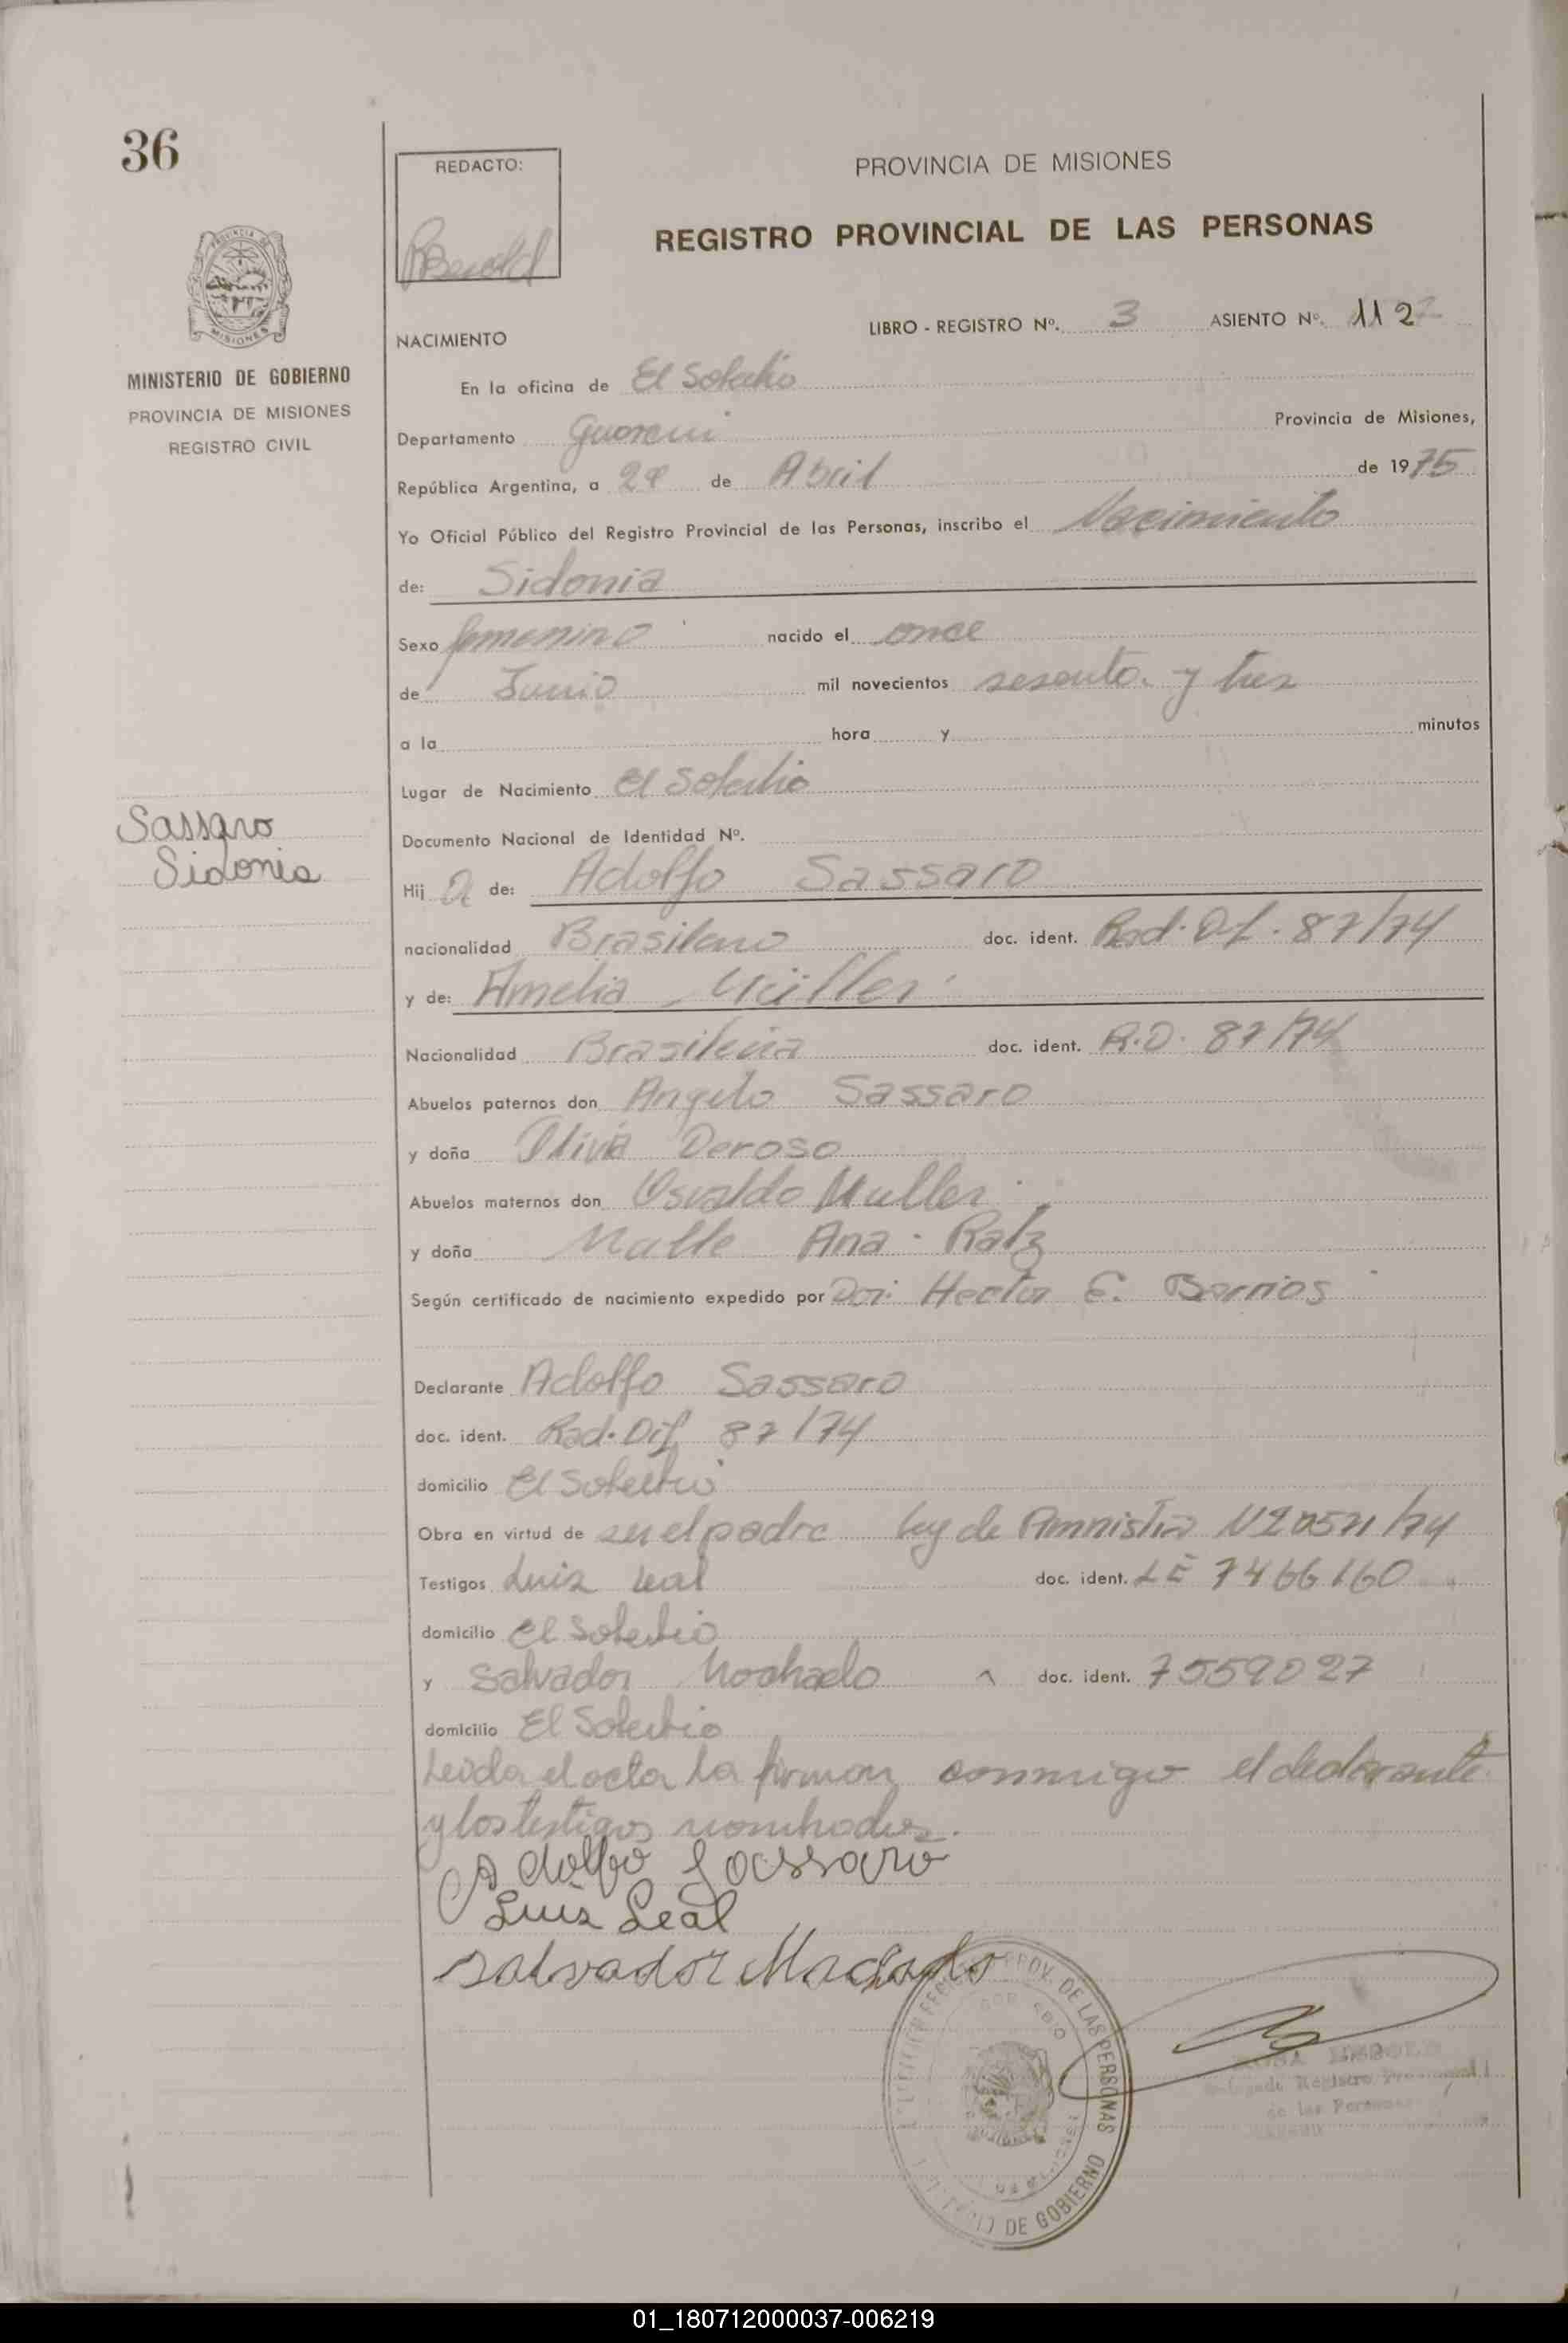 36
REDACTO:
PROVINCIA DE MISIONES
REGISTRO PROVINCIAL DE LAS PERSONAS
LIBRO - REGISTRO Nº. 3 ASIENTO Nº. 112
NACIMIENTO
MINISTERIO DE GOBIERNO
PROVINCIA DE MISIONES
REGISTRO CIVIL
En la oficina de El Soberbio
Departamento Guarani Provincia de Misiones,
República Argentina, a de Abril de 1975
Yo Oficial Público del Registro Provincial de las Personas, inscribo el Nacimiento
de: Sidonia
Sexo femenino nacido el once
de Junio mil novecientos sesenta y tres
a la hora y minutos
Lugar de Nacimiento El Soberbio
Sassaro
Sidonia
Documento Nacional de Identidad Nº.
Hij a de: Adolfo Sassaro
nacionalidad Brasileno doc. ident. Rad. Df. 87/74
y de: Amelia Müller
Nacionalidad Brasilenia doc. ident. R.D. 87/74
Abuelos paternos don Angelo Sassaro
y doña Olivia Deroso
Abuelos maternos don Osvaldo Muller
y doña Malle Ana Ratz
Según certificado de nacimiento expedido por Dor. Hector E. Barrios
Declarante Adolfo Sassaro
doc. ident. Rad. Dif 87/74
domicilio El Soberbio
Obra en virtud de ser el padre Ley de Amnistia
Testigos Luiz Leal doc. ident. LE 7466160
domicilio El Soberbio
y Salvador Machado doc. ident. 7559027
domicilio El Soberbio
Leida el acta la firman conmigo el declarante
y los testigos nombrados.
Adolfo Sassaro
Luiz Leal
Salvador Machado
PROV. DE LAS PERSONAS
DE GOBIERNO
Registro
de las Personas
01_180712000037-006219